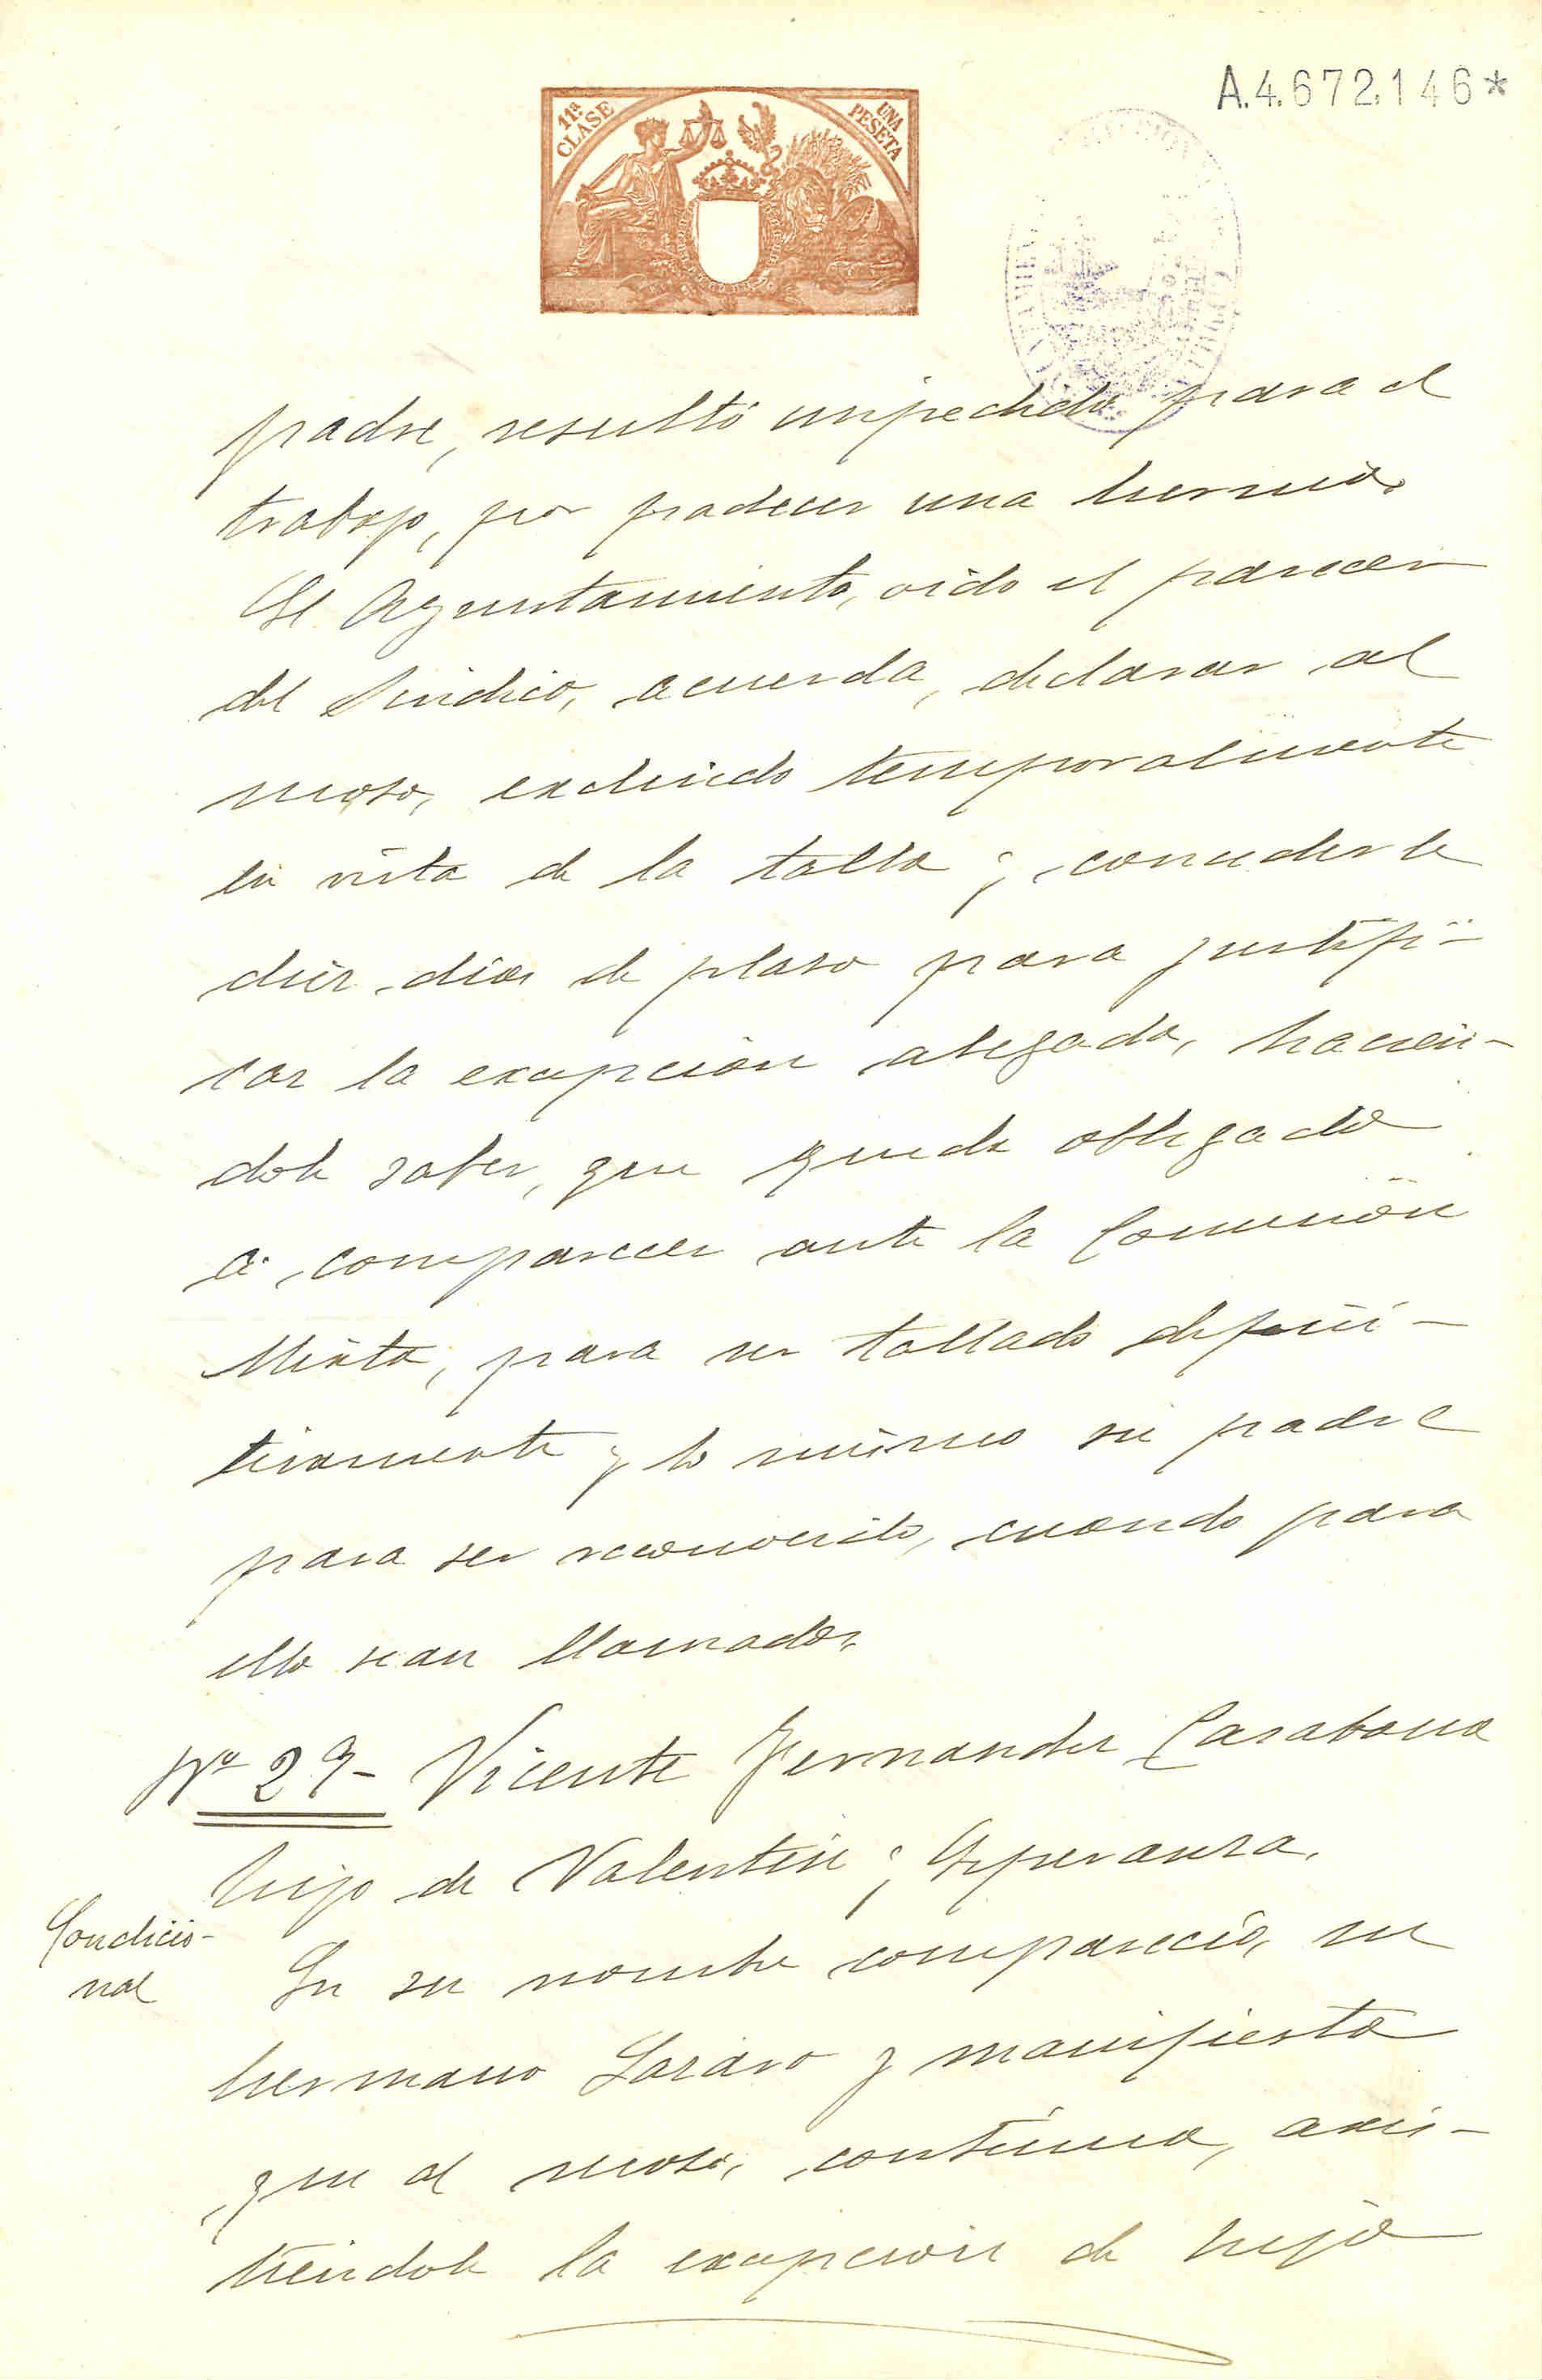 A.4.672.146*
11ª CLASE
UNA PESETA
padre, resultó impedido para el
trabajo, por padecer una hernia.
El Ayuntamiento, oido el parecer
del Sindico, acuerda, declarar al
moso, excluido temporalmente
en vista de la talla y concederle
diez dias de plaso para justifi-
car la excepción alegada, hacien-
dole saber, que queda obligado
á comparecer ante la Comisión
Mixta, para ser tallado defini-
tivamente y lo mismo su padre
para ser reconocido, cuando para
ello sean llamados.
Nº 29- Vicente Fernandez Casabona
hijo de Valentin y Esperanza.
Condicio-
nal
En su nombre compareció, su
hermano Lazaro y manifiesta
que el moso, continua, asis-
tiendole la excepcion de hijo